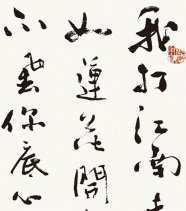 我打江南
如蓮花開
不飛你底心